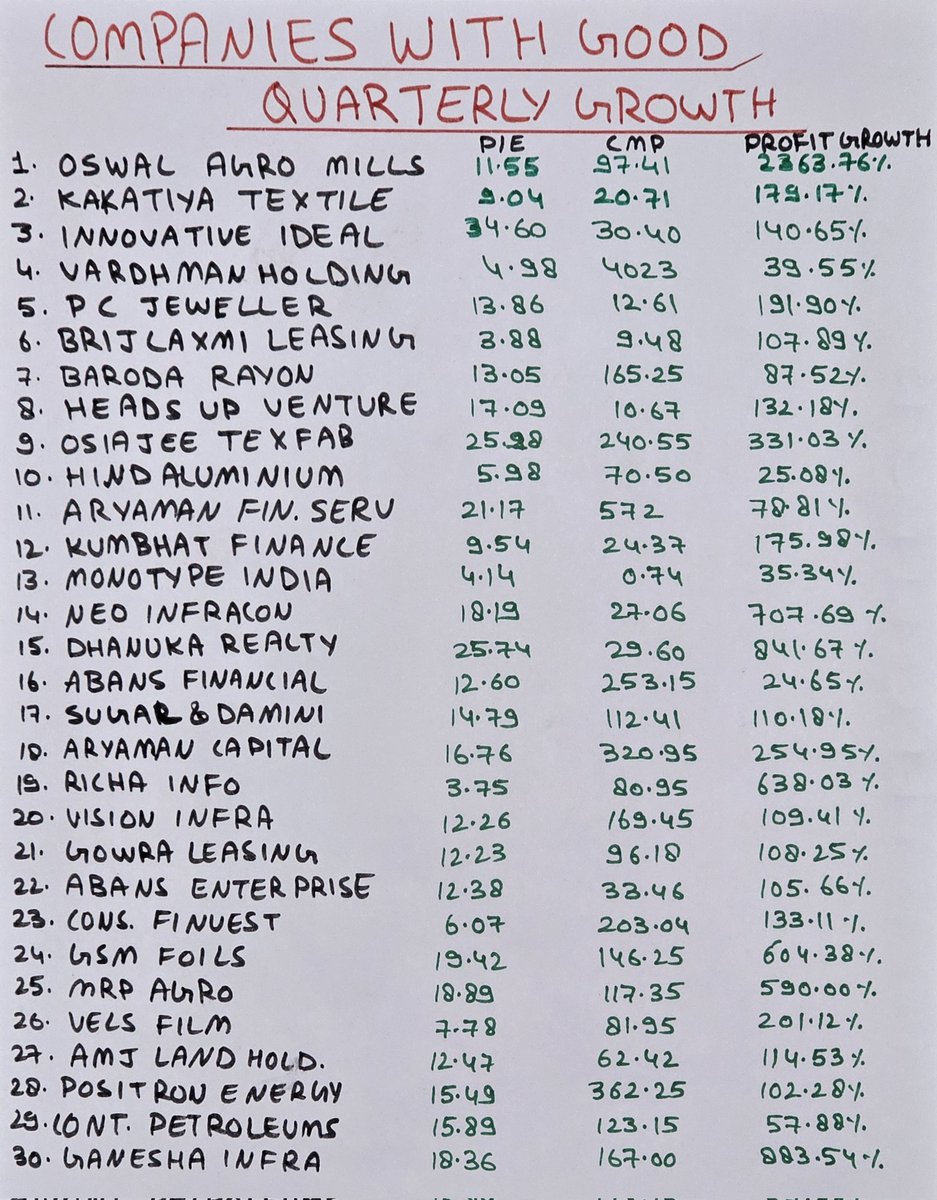 COMPANIES WITH GOOD
QUARTERLY GROWTH
P/E CMP PROFIT GROWTH
1. OSWAL AGRO MILLS 11.55 97.41 2363.76%
2. KAKATIYA TEXTILE 9.04 20.71 179.17%
3. INNOVATIVE IDEAL 34.60 30.40 140.65%
4. VARDHMAN HOLDING 4.98 4023 39.55%
5. PC JEWELLER 13.86 12.61 191.90%
6. BRIJLAXMI LEASING 3.88 9.48 107.89%
7. BARODA RAYON 13.05 165.25 87.52%
8. HEADS UP VENTURE 17.09 10.67 132.18%
9. OSIAJEE TEXFAB 25.98 240.55 331.03%
10. HIND ALUMINIUM 5.98 70.50 25.08%
11. ARYAMAN FIN. SERV 21.17 572 78.81%
12. KUMBHAT FINANCE 9.54 24.37 175.98%
13. MONOTYPE INDIA 4.14 0.74 35.34%
14. NEO INFRACON 18.19 27.06 707.69%
15. DHANUKA REALTY 25.74 29.60 841.67%
16. ABANS FINANCIAL 12.60 253.15 24.65%
17. SUGAL & DAMINI 14.79 112.41 110.18%
18. ARYAMAN CAPITAL 16.76 320.95 254.95%
19. RICHA INFO 3.75 80.95 638.03%
20. VISION INFRA 12.26 169.45 109.41%
21. GOWRA LEASING 12.23 96.18 108.25%
22. ABANS ENTERPRISE 12.38 33.46 105.66%
23. CONS. FINVEST 6.07 203.04 133.11%
24. GSM FOILS 19.42 146.25 604.38%
25. MRP AGRO 18.89 117.35 590.00%
26. VELS FILM 7.78 81.95 201.12%
27. AMJ LAND HOLD. 12.47 62.42 114.53%
28. POSITRON ENERGY 15.49 362.25 102.28%
29. CONT. PETROLEUMS 15.89 123.15 57.88%
30. GANESHA INFRA 18.36 167.00 883.54%